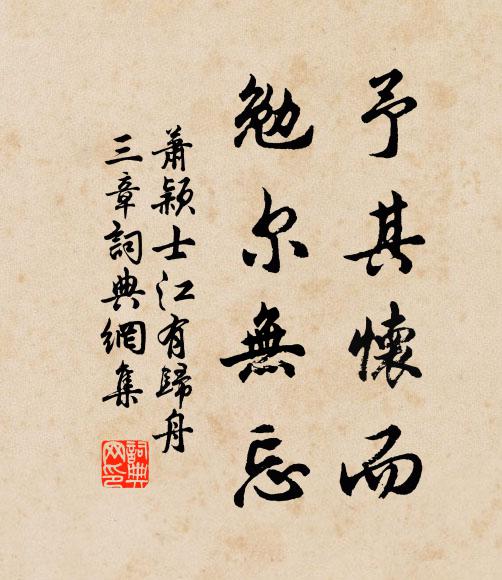 予其懷而
勉尔無忘
蕭穎士江有歸舟
三章詞典網集
詞典
网印